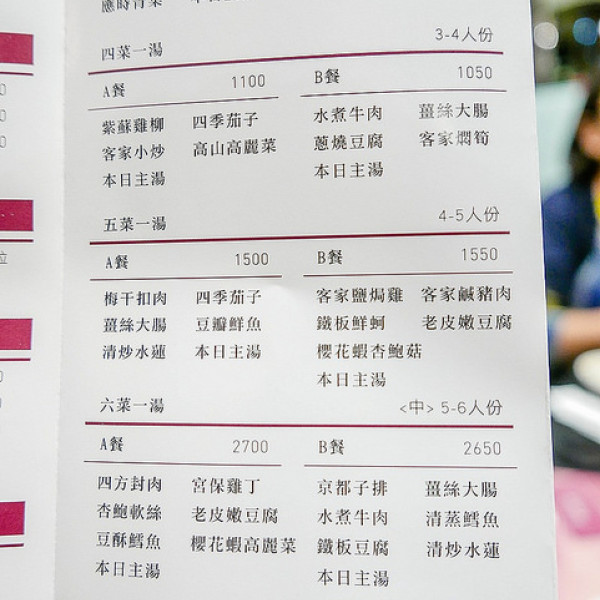 應時青菜 本日
四菜一湯 3-4人份
A餐 1100
紫蘇雞柳 四季茄子
客家小炒 高山高麗菜
本日主湯
B餐 1050
水煮牛肉 薑絲大腸
蔥燒豆腐 客家燜筍
本日主湯
五菜一湯 4-5人份
A餐 1500
梅干扣肉 四季茄子
薑絲大腸 豆瓣鮮魚
清炒水蓮 本日主湯
B餐 1550
客家鹽焗雞 客家鹹豬肉
鐵板鮮蚵 老皮嫩豆腐
櫻花蝦杏鮑菇
本日主湯
六菜一湯 <中> 5-6人份
A餐 2700
四方封肉 宮保雞丁
杏鮑軟絲 老皮嫩豆腐
豆酥鱈魚 櫻花蝦高麗菜
本日主湯
B餐 2650
京都子排 薑絲大腸
水煮牛肉 清蒸鱈魚
鐵板豆腐 清炒水蓮
本日主湯